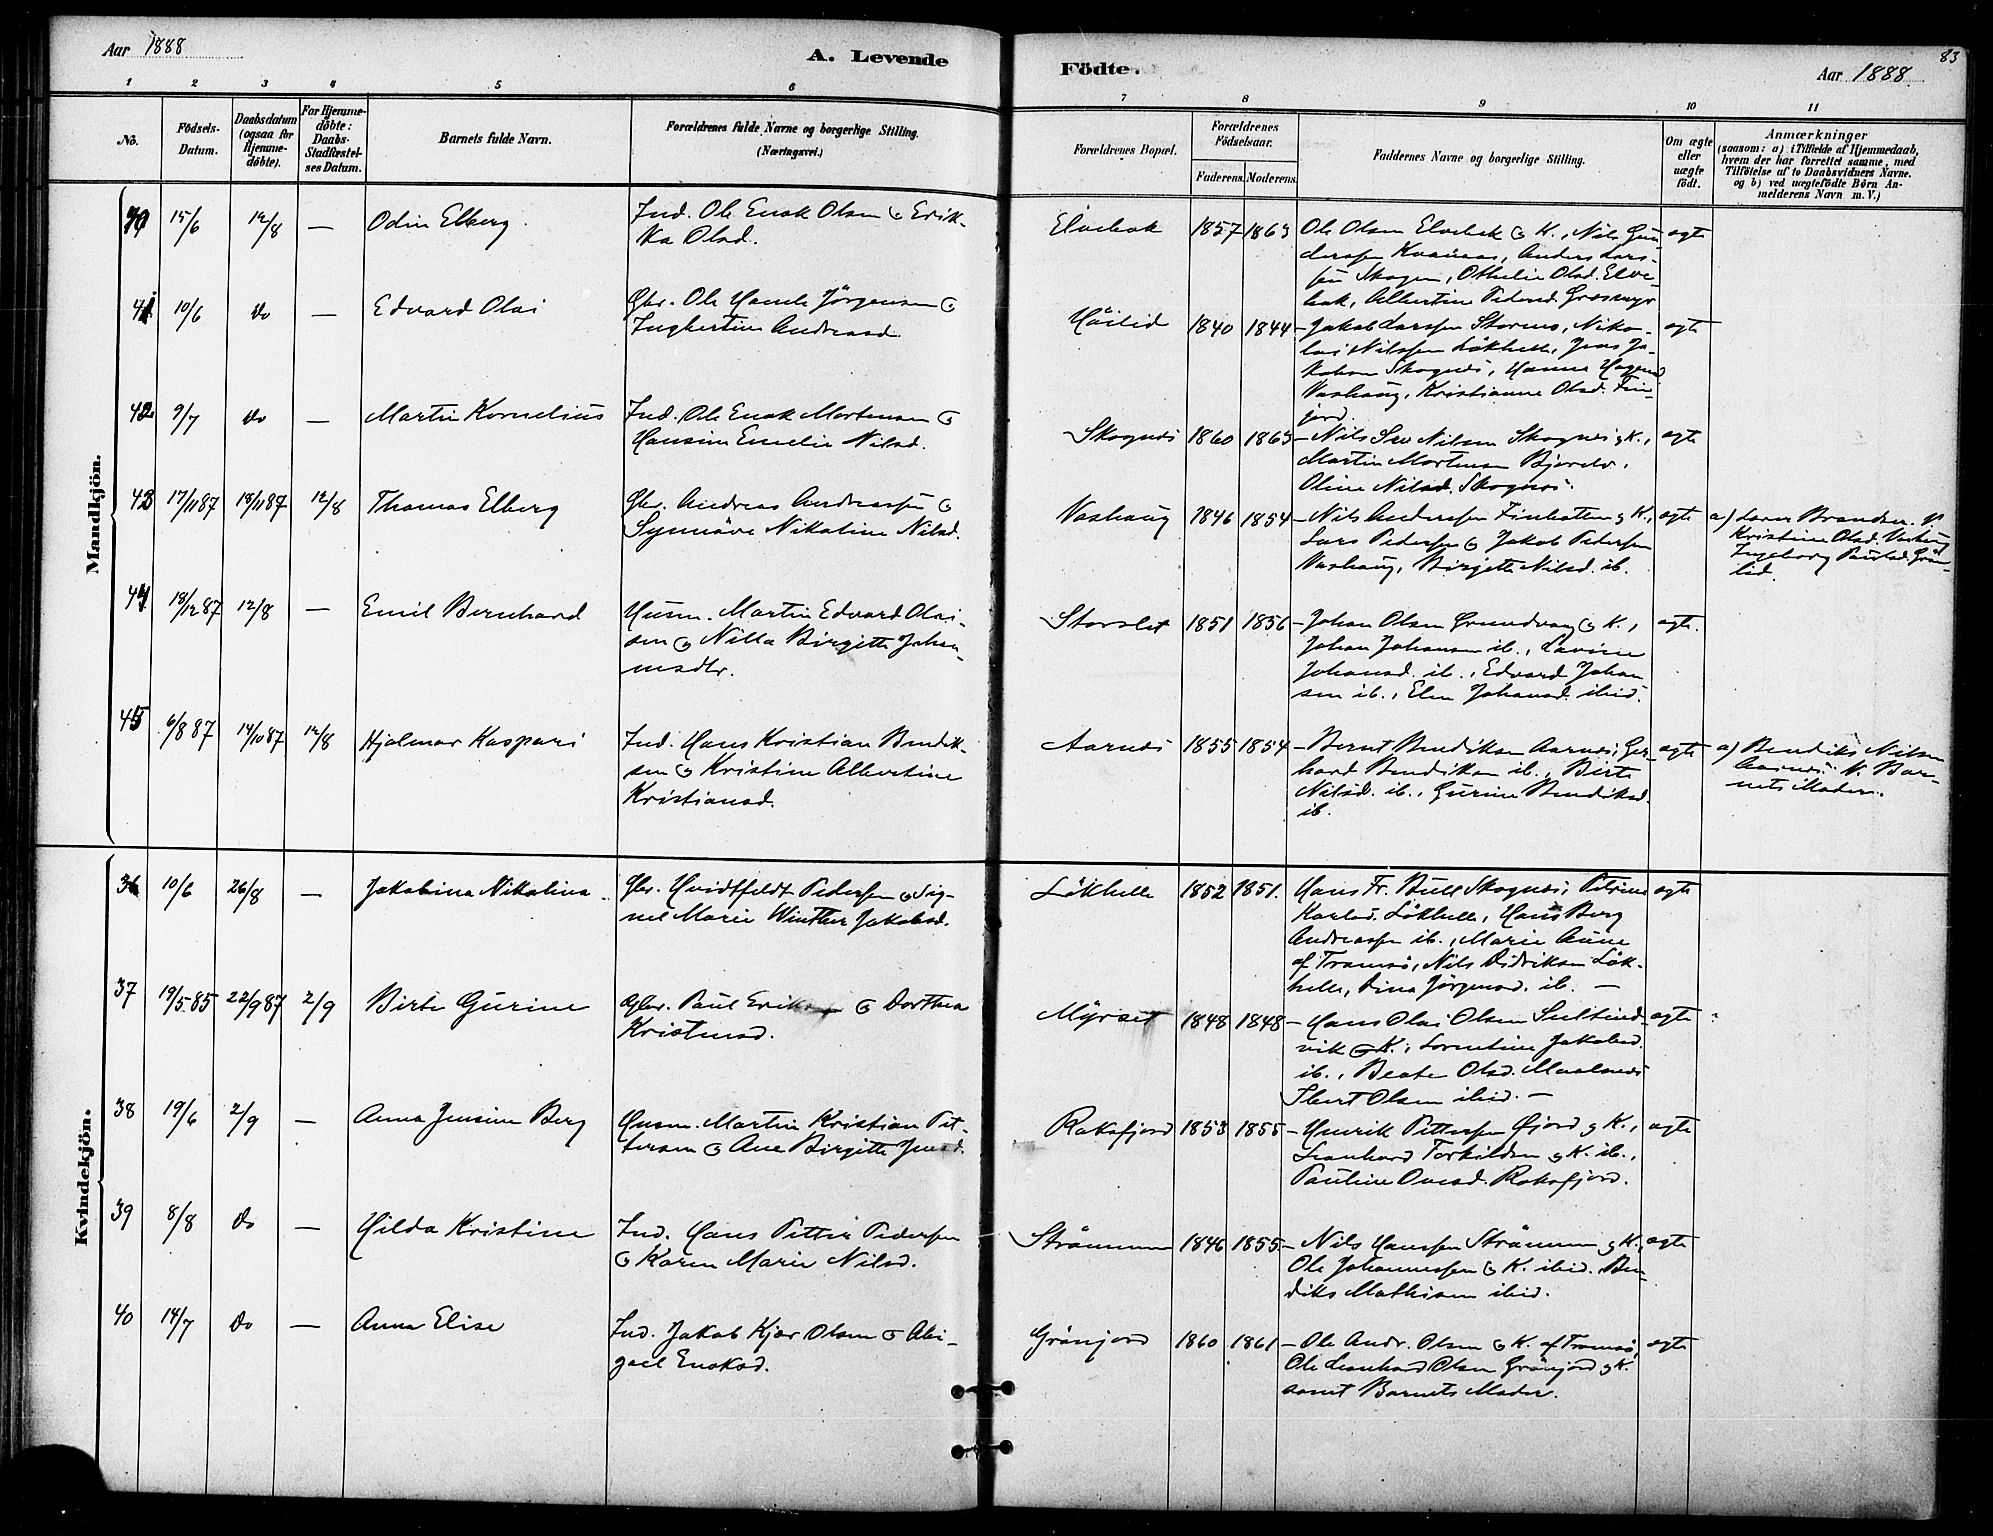 Aar 1888
A. Levende
Födte.
83
Aar 1888
1 2 3 4 5 6 7 8 9 10 11
No.
Födsels-
Datum.
Daabsdatum
(ogsaa for
Hjemme-
döbte).
For Hjemme-
döbte:
Daabs-
Stadfæstel-
ses Datum.
Barnets fulde Navn.
Forældrenes fulde Navne og borgerlige Stilling.
(Næringsvei.)
Forældrenes Bopæl.
Forældrenes
Födselsaar.
Faderens. Moderens.
Faddernes Navne og borgerlige Stilling.
Om ægte
eller
uægte
födt.
Anmærkninger
(saasom: a) i Tilfælde af Hjemmedaab,
hvem der har forrettet samme, med
Tilföielse af to Daabsvidners Navne.
og b) ved uægtefödte Börn An-
melderens Navn m. V.)
Mandkjön.
40 15/6 12/8 — Odin Elberg.
Ind. Ole Enok Olsen & Erik-
ka Olsd.
Elvebak 1857 1863
Ole Olsen Elvebak & K., Nils Gun-
derssen Kvænnes, Anders Lars-
sen Skogen, Othelie Olsd. Elve-
bak, Albertine Pedersd. Grasmyr
ægte
41 10/6 Do — Edvard Olai
Gbr. Ole Hemk Jørgensen &
Ingbertine Andreasd.
Höilid 1840 1844
— Jakob Larssen Stornes, Niko-
lai Nilssen Løkhelle, Jens Ja-
kobsen Skognes, Hanna Hagensd
Vashaug, Kristianne Olsd. Fin-
jord.
ægte
42 9/7 Do — Martin Kornelius
Ind. Ole Enok Mortensen &
Hansine Emelie Nilsd.
Skognes 1860 1863
— Nils Nilsen Skognes & K.,
Martin Mortensen Bjorelv.
Oline Nilsd. Skognes.
ægte
43 17/11 87 18/11 87 12/8 Thomas Elberg
Gbr. Andreas Andreassen &
Synnöve Nikoline Nilsd.
Vashaug 1846 1854
— Nils Anderssen Finhatten & K.,
Lars Pedersen & Jakob Pedersen
Vashaug, Birgitte Nilsd. ib.
ægte
a) Lærer Brandser. V.
Kristine Olsd. Vashaug
Ingeborg Paulsd. Grön-
lid.
44 18/12 87 12/8 — Emil Bernhard
Husm. Martin Edvard Olai-
sen & Nilla Birgitte Johan-
nesdtr.
Storslet 1851 1856
— Johan Olsen Grundvaag & K.,
Johan Johansen ib., Lovine
Johansd. ib., Edvard Johan
sen ib., Elen Johansd. ibid.
ægte.
45 6/8 87 14/10 87 12/8 Hjalmar Kaspari
Ind. Hans Kristian Bendik-
sen & Kristine Albertine
Kristiansd.
Aarnes 1855 1854
— Bernt Bendiksen Aarnes, Ger-
hard Bendiksen ib., Birte
Nilsd. ib., Gurine Bendiksd.
ib.
ægte
a) Bendiks Nilsen
Aarnes. V. Bar-
nets Moder.
Kvindekjön.
36 10/6 26/8 — Jakobina Nikolina
Gbr. Hvidtfeldt Pedersen & Sig-
nel Marie Winther Jakobsd.
Løkhelle 1852 1851.
Hans Fr. Bull Skognes, Petrine
Karlsd. Løkhelle, Hans Berg
Andreassen ib., Marie Aune
af Tromsö, Nils Didriksen Løk-
helle, Dina Jørgensd. ib. —
ægte
37 19/5 85 22/9 87 2/9 Birte Gurine
Gbr. Paul Eriksen & Dorthea
Kristensd.
Myrset 1848 1848
— Hans Olai Olsen Sultind-
vik & K., Lorentine Jakobsd.
ib., Beate Olsd. Maalsnes
Ibert Olsen ibid. —
ægte
38 19/6 2/9 — Anna Jensine Berg
Husm. Martin Kristian Pet-
tersen & Ane Birgitte Jensd.
Rakafjord 1853 1855
— Henrik Pettersen Øjord & K.,
Leonhard Torkildsen & K. ib.,
Pauline Ovesd. Rakafjord.
ægte
39 8/8 Do — Hilda Kristine
Ind. Hans Petter Pedersen
& Karen Marie Nilsd.
Strömmen 1846 1855.
— Nils Hanssen Strömmen & K.
Ole Johannessen & K. ibid. Ben-
diks Mathisen ibid.
ægte
40 14/7 Do — Anna Elise
Ind. Jakob Kjær Olsen & Abi-
gael Enoksd.
Grönjord 1860 1861
— Ole Andr. Olsen & K. af Tromsö,
Ole Leonhard Olsen Grönjord & K.
samt Barnets Moder.
ægte